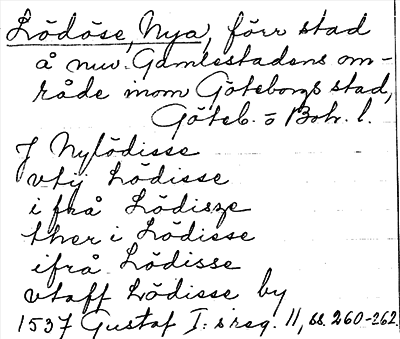 Lödöse, Nya, förr stad
å nuv. Gamlestadens om-
råde inom Göteborgs stad,
Göteb. o Boh. l.
J Nylödisse
vtij Lödisse
i frå Lödisze
ther i Lödisse
ifrå Lödisse
vtaff Lödisse by
1537 Gustaf I:s reg. 11, ss. 260-262.